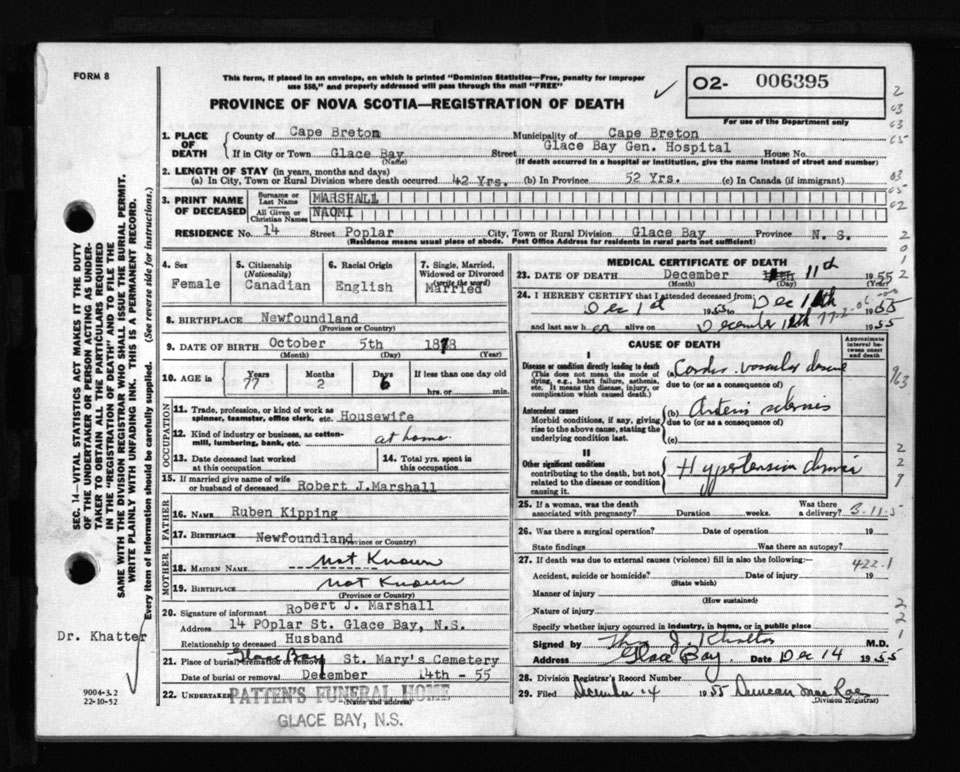 FORM 8
This form, if placed in an envelope, on which is printed "Dominion Statistics—Free, penalty for improper
use $50," and properly addressed will pass through the mail "FREE"
02- 006395
For use of the Department only
PROVINCE OF NOVA SCOTIA—REGISTRATION OF DEATH
1. PLACE OF DEATH
County of Cape Breton Municipality of Cape Breton
If in City or Town Glace Bay (Name) Street Glace Bay Gen. Hospital House No.
(If death occurred in a hospital or institution, give the name instead of street and number)
2. LENGTH OF STAY (in years, months and days)
(a) In City, Town or Rural Division where death occurred 42 Yrs. (b) In Province 52 Yrs. (c) In Canada (if immigrant)
3. PRINT NAME OF DECEASED
Surname or Last Name MARSHALL
All Given or Christian Names NAOMI
RESIDENCE No. 14 Street Poplar City, Town or Rural Division Glace Bay Province N. S.
(Residence means usual place of abode. Post Office Address for residents in rural parts not sufficient)
4. Sex Female
5. Citizenship (Nationality) Canadian
6. Racial Origin English
7. Single, Married, Widowed or Divorced (write the word) Married
8. BIRTHPLACE Newfoundland
(Province or Country)
9. DATE OF BIRTH October 5th 1878
(Month) (Day) (Year)
10. AGE in Years 77 Months 2 Days 6 If less than one day old
hrs. or min.
OCCUPATION
11. Trade, profession, or kind of work as
spinner, teamster, office clerk, etc. Housewife
12. Kind of industry or business, as cotton-
mill, lumbering, bank, etc. at home.
13. Date deceased last worked
at this occupation
14. Total yrs. spent in
this occupation
15. If married give name of wife
or husband of deceased Robert J. Marshall
FATHER
16. NAME Ruben Kipping
17. BIRTHPLACE Newfoundland
(Province or Country)
MOTHER
18. MAIDEN NAME Not Known
19. BIRTHPLACE Not Known
(Province or Country)
20. Signature of informant Robert J. Marshall
Address 14 POplar St. Glace Bay, N.S.
Relationship to deceased Husband
21. Place of burial, cremation or removal Glace Bay St. Mary's Cemetery
Date of burial or removal December 14th - 55
22. UNDERTAKER PATTEN'S FUNERAL HOME
(Name and address)
GLACE BAY, N.S.
MEDICAL CERTIFICATE OF DEATH
23. DATE OF DEATH December 11th 1955
(Month) (Day)
24. I HEREBY CERTIFY that I attended deceased from
Dec 1st 1955 to Dec 11th 1955
and last saw her alive on December 11th 1955
CAUSE OF DEATH
Approximate interval between onset and death
I
Disease or condition directly leading to death
(This does not mean the mode of
dying, e.g., heart failure, asthenia,
etc. It means the disease, injury, or
complication which caused death.)
(a) Cardio-vascular disease
due to (or as a consequence of)
Antecedent causes
Morbid conditions, if any, giving
rise to the above cause, stating the
underlying condition last.
(b) Arterio sclerosis
due to (or as a consequence of)
(c)
II
Other significant conditions
contributing to the death, but not
related to the disease or condition
causing it.
Hypertension
25. If a woman, was the death
associated with pregnancy? Duration weeks. Was there a delivery?
26. Was there a surgical operation? Date of operation 19
State findings Was there an autopsy?
27. If death was due to external causes (violence) fill in also the following: 422.1
Accident, suicide or homicide? Date of injury 19
(State which)
Manner of injury
(How sustained)
Nature of injury
Specify whether injury occurred in industry, in home, or in public place
Signed by Khattar M.D.
Address Glace Bay. Date Dec 14 1955
28. Division Registrar's Record Number
29. Filed December 14 1955 Duncan MacRae
(Division Registrar)
SEC. 14—VITAL STATISTICS ACT MAKES IT THE DUTY
OF THE UNDERTAKER OR PERSON ACTING AS UNDER-
TAKER TO OBTAIN ALL THE PARTICULARS REQUIRED
IN THE "REGISTRATION OF DEATH" AND TO FILE THE
SAME WITH THE DIVISION REGISTRAR WHO SHALL ISSUE THE BURIAL PERMIT.
WRITE PLAINLY WITH UNFADING INK. THIS IS A PERMANENT RECORD.
Every item of information should be carefully supplied. (See reverse side for instructions.)
Dr. Khatter
9004-3.2
22-10-52